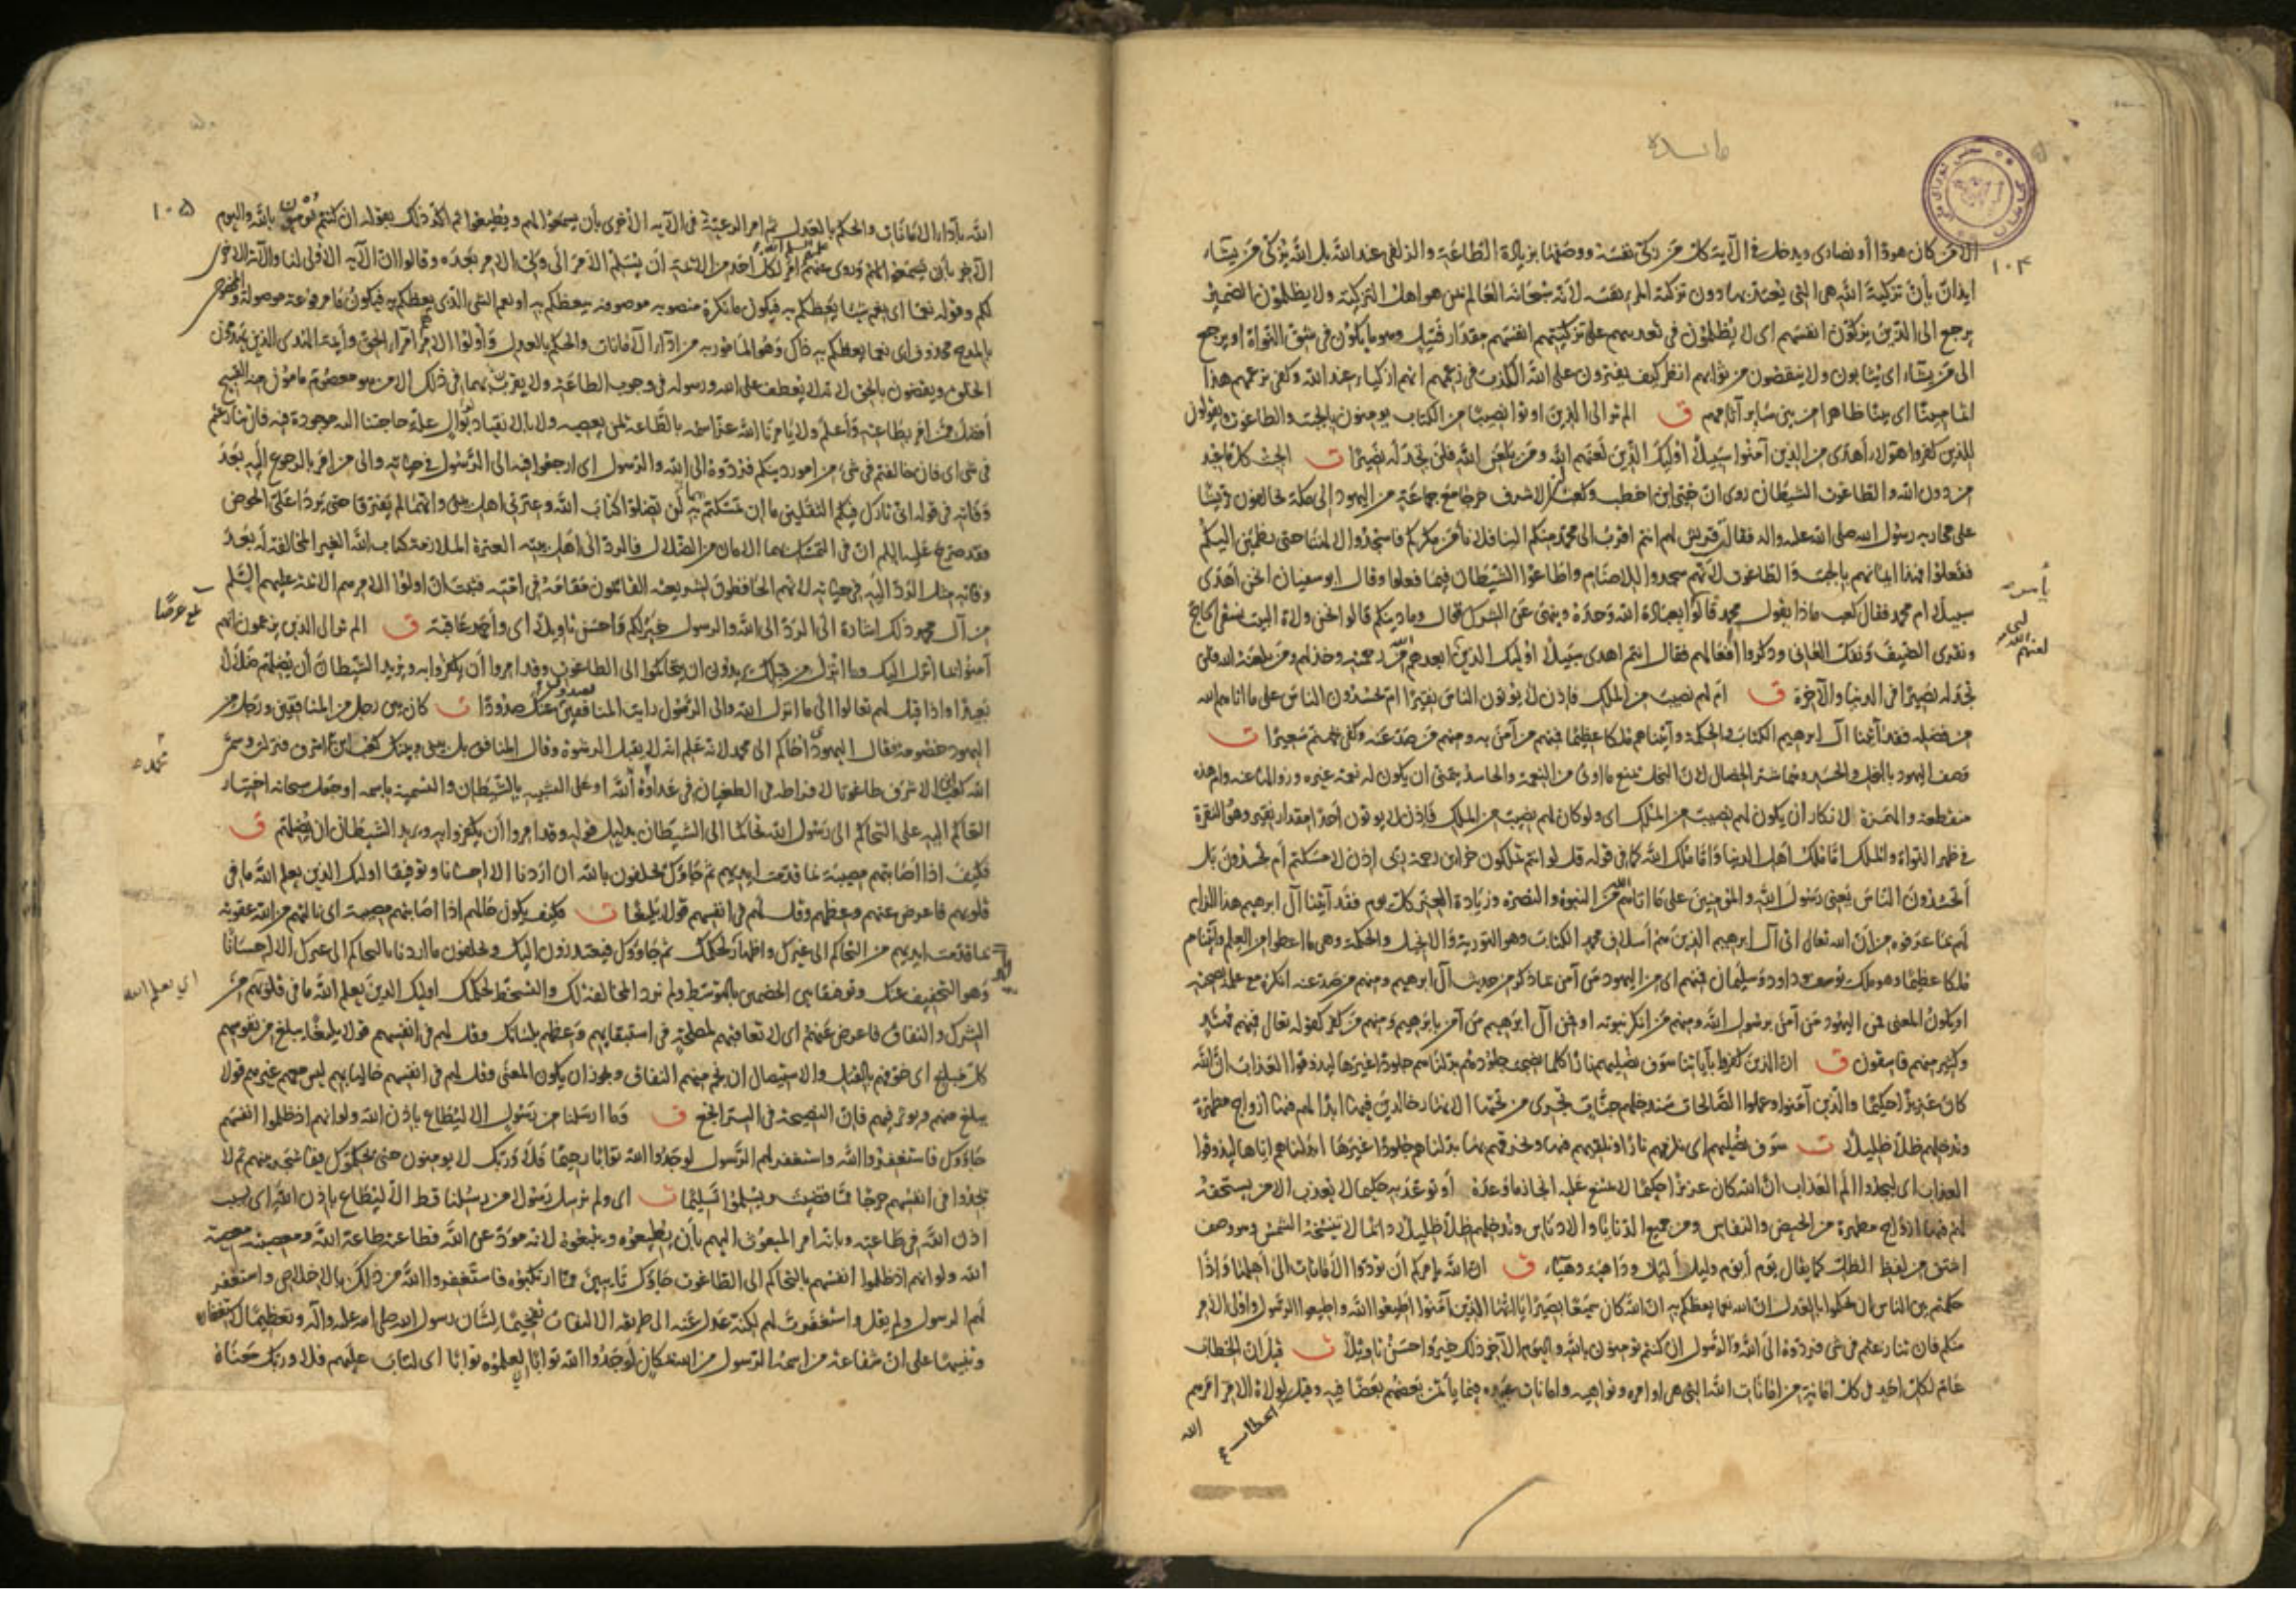 مائده
١٠۴
الا من كان هودا أو نصارى ويدخل في الآية كل من زكى نفسه ووصفها بزيادة الطاعة والزلفى عند الله بل الله يزكى من يشاء
ايذان بأن تزكية الله هي التي يعتد بها دون تزكية المرء نفسه لأنه سبحانه العالم بمن هو اهل التزكية ولا يظلمون الضمير
يرجع الى الذين يزكون انفسهم اى لا يظلمون في تعذيبهم على تزكيتهم انفسهم مقدار فتيل وهو ما يكون في شق النواة او يرجع
الى من يشاء اى يثابون ولا ينقصون من ثوابهم انظر كيف يفترون على الله الكذب في زعمهم انهم ازكياء عند الله وكفى بزعمهم هذا
اثما مبينا اى بينا ظاهرا من بين ساير آثامهم ق الم تر الى الذين اوتوا نصيبا من الكتاب يومنون بالجبت والطاغوت ويقولون
للذين كفروا هؤلاء أهدى من الذين آمنوا سبيلا اولئك الذين لعنهم الله ومن يلعن الله فلن تجد له نصيرا ت الجبت كل ما عبد
من دون الله والطاغوت الشيطان روى ان حيى ابن اخطب وكعب بن الاشرف خرجا مع جماعة من اليهود الى مكة يحالفون قريشا
على محاربه رسول الله صلى الله عليه واله فقال قريش لهم انتم اقرب الى محمد منكم الينا فلا نأمن مكركم فاسجدوا لالهتنا حتى نطمئن اليكم
ففعلوا فهذا ايمانهم بالجبت والطاغوت لأنهم سجدوا للاصنام واطاعوا الشيطان فيما فعلوا وقال ابو سفيان انحن اهدى
سبيلا ام محمد فقال كعب ماذا يقول محمد قالوا يامر بعبادة الله وحده وينهى عن الشرك قال وما دينكم قالوا نحن ولاة البيت نسقى الحاج
ونقرى الضيف ونفك العانى وذكروا أفعالهم فقال انتم اهدى سبيلا اولئك الذين لعنهم الله ابعدهم الله من رحمته وخذلهم ومن يلعنه الله فلن
تجد له نصيرا في الدنيا والآخرة ق ام لهم نصيب من الملك فاذن لا يؤتون الناس نقيرا ام يحسدون الناس على ما اتاهم الله
من فضله فقد آتينا آل ابرهيم الكتاب والحكمة وآتيناهم ملكا عظيما فمنهم من آمن به ومنهم من صد عنه وكفى بجهنم سعيرا ت
وصف اليهود بالبخل والحسد وهما شر الخصال لان البخل يمنع ما اوتى من النعمة والحاسد يتمنى ان يكون له نعمة غيره وزوالها عنه وام هذه
منقطعة والهمزة لانكار ان يكون لهم نصيب من الملك اى ولو كان لهم نصيب من الملك فاذن لا يؤتون أحدا مقدار نقير وهو النقرة
في ظهر النواة والملك اما ملك اهل الدنيا واما ملك الله كما في قوله قل لو انتم تملكون خزاين رحمة ربى اذن لامسكتم أم يحسدون بل
أيحسدون الناس يعنى رسول الله والمؤمنين على ما اتاهم الله من النبوة والنصرة وزيادة العز كل يوم فقد آتينا آل ابرهيم هذا الزام
لهم بما عرفوه من ان الله تعالى اتى آل ابرهيم الذين هم أسلاف محمد الكتاب وهو التورية والانجيل والحكمة وهى ما اعطوا من العلم وآتيناهم
ملكا عظيما وهو ملك يوسف وداود وسليمان فمنهم اى من اليهود من آمن بما ذكر من حديث آل ابرهيم ومنهم من صد عنه انكره مع علمه بصحته
او يكون المعنى فمن اليهود من آمن برسول الله ومنهم من انكر نبوته او فمن آل ابرهيم من آمن بابرهيم ومنهم من كفر كقوله تعالى فمنهم مهتد
وكثير منهم فاسقون ق ان الذين كفروا بآياتنا سوف نصليهم نارا كلما نضجت جلودهم بدلناهم جلودا غيرها ليذوقوا العذاب ان الله
كان عزيزا حكيما والذين آمنوا وعملوا الصالحات سندخلهم جنات تجرى من تحتها الانهار خالدين فيها ابدا لهم فيها ازواج مطهرة
وندخلهم ظلا ظليلا ت سوف نصليهم اى نلزمهم نارا ونلقيهم فيها ونحرقهم بها بدلناهم جلودا غيرها ابدلناهم اياها ليذوقوا
العذاب اى ليجدوا الم العذاب ان الله كان عزيزا حكيما لا يمتنع عليه انجاز ما وعده او توعد به حكيما لا يعذب الا من يستحقه
لهم فيها ازواج مطهرة من الحيض والنفاس ومن جميع الدنايا والادناس وندخلهم ظلا ظليلا دائما لا تنسخه الشمس وهو وصف
اشتق من لفظ الظل كما يقال يوم أيوم وليل أليل وداهية دهياء ق ان الله يامركم أن تؤدوا الأمانات الى أهلها واذا
حكمتم بين الناس ان تحكموا بالعدل ان الله نعما يعظكم به ان الله كان سميعا بصيرا يا ايها الذين آمنوا اطيعوا الله واطيعوا الرسول واولى الامر
منكم فان تنازعتم في شى فردوه الى الله والرسول ان كنتم تومنون بالله واليوم الآخر ذلك خير واحسن تاويلا ت قيل ان الخطاب
عام لكل احد في كل امانة من امانات الله التى هى اوامره ونواهيه وامانات عبيده فيما يأتمن بعضهم بعضا فيه وقيل لولاة الامر امرهم
الله
١٠۵
الله بأداء الامانات والحكم بالعدل ثم امر الرعية في الآيه الأخرى بأن يسمعوا لهم ويطيعوا ثم اكد ذلك بقوله ان كنتم تومنون بالله واليوم
لكم وقوله نعما اى نعم شيئا يعظكم به فيكون ما نكرة منصوبه موصوفه بيعظكم به او نعم الشى الذى يعظكم به فيكون ما مرفوعة موصولة والمخصوص
بالمدح محذوف اى نعما يعظكم به ذاك وهو المامور به من اداء الأمانات والحكم بالعدل وأولوا الامر امراء الحق وأيمة الهدى الذين يهدون
الخلق ويقضون بالحق لانه لا يعطف على الله ورسوله في وجوب الطاعة ولا يقرن بهما في ذلك الا من هو معصوم مامون منه القبيح
أفضل ممن امر بطاعته وأعلم ولا يامرنا الله عز اسمه بالطاعة لمن يعصيه ولا بالانقياد لوال علة حاجتنا اليه موجودة فيه فان تنازعتم
في شى اى فان خالفتم في شىء من امور دينكم فردوه الى الله والرسول اى ارجعوا فيه الى الرسول في حياته والى من امر بالرجوع اليه بعد
وفاته في قوله انى تارك فيكم الثقلين ما ان تمسكتم به لن تضلوا كتاب الله وعترتى اهل بيتى وانهما لم يفترقا حتى يردا على الحوض
فقد صرح عليه السلم ان في التمسك بهما الامان من الضلال فالرد الى اهل بيته العترة الملازمة كتاب الله الغير المخالفة له بعد
وفاته مثل الرد اليه في حياته لانهم الحافظون لشريعته القائمون مقامه في امته فثبت ان اولوا الامر هم الائمة عليهم السلم
من آل محمد ذلك اشارة الى الرد الى الله والرسول خير لكم واحسن تاويلا اى وأحمد عاقبة ق الم تر الى الذين يزعمون انهم
آمنوا بما انزل اليك وما انزل من قبلك يريدون ان يتحاكموا الى الطاغوت وقد امروا أن يكفروا به ويريد الشيطان أن يضلهم ضلالا
بعيدا واذا قيل لهم تعالوا الى ما انزل الله والى الرسول رايت المنافقين يصدون عنك صدودا ت كان بين رجل من المنافقين ورجل من
اليهود خصومة فقال اليهودى احاكم الى محمد لانه علم انه لا يقبل الرشوة وقال المنافق بل بينى وبينك كعب ابن اشرف فنزلت وسمى
الله كعب بن الاشرف طاغوتا لافراطه في الطغيان في عداوة الله او على التشبيه بالشيطان والتسمية باسمه او جعل سبحانه اختيار
التحاكم اليه على التحاكم الى رسول الله تحاكما الى الشيطان بدليل قوله وقد امروا أن يكفروا به ويريد الشيطان ان يضلهم ق
فكيف اذا اصابتهم مصيبة بما قدمت ايديهم ثم جاؤك يحلفون بالله ان اردنا الا احسانا وتوفيقا اولئك الذين يعلم الله ما في
قلوبهم فاعرض عنهم وعظهم وقل لهم في انفسهم قولا بليغا ت فكيف يكون حالهم اذا اصابتهم مصيبة اى نالتهم من الله عقوبة
بما قدمت ايديهم من التحاكم الى غيرك واظهار لحكمك ثم جاؤوك فيعتذرون اليك ويحلفون ما اردنا بالتحاكم الى غيرك الا احسانا
وهو التخفيف عنك وتوفيقا بين الخصمين بالتوسط ولم نرد المخالفة لك والتسخط لحكمك اوليك الذين يعلم الله ما في قلوبهم من
الشرك والنفاق فاعرض عنهم اى لا تعاقبهم لمصلحة في استبقايهم وعظهم بلسانك وقل لهم في انفسهم قولا بليغا يبلغ من نفوسهم
كل مبلغ اى خوفهم بالقتل والاستيصال ان نجم منهم النفاق ويجوز ان يكون المعنى وقل لهم في انفسهم خاليا بهم ليس معهم غيرهم قولا
يبلغ منهم ويوثر فيهم فان النصيحة في السر انجع ق وما ارسلنا من رسول الا ليطاع باذن الله ولو انهم اذ ظلموا انفسهم
جاؤوك فاستغفروا الله واستغفر لهم الرسول لوجدوا الله توابا رحيما فلا وربك لا يومنون حتى يحكموك فيما شجر بينهم ثم لا
يجدوا في انفسهم حرجا مما قضيت ويسلموا تسليما ت اى ولم نرسل رسولا من رسلنا قط الا ليطاع باذن الله اى بسبب
اذن الله في طاعته وبانه امر المبعوث اليهم بأن يطيعوه ويتبعوه لانه مؤد عن الله فطاعته طاعة الله ومعصيته معصية
الله ولو انهم اذ ظلموا انفسهم بالتحاكم الى الطاغوت جاؤك تايبين مما ارتكبوه فاستغفروا الله من ذلك بالاخلاص واستغفر
لهم الرسول ولم يقل واستغفرت لهم لكنه عدل عنه الى طريقة الالتفات تفخيما لشان رسول الله صلى الله عليه وآله وتعظيما لاستغفاره
وتنبيها على ان شفاعة من اسمه الرسول من الله بمكان لوجدوا الله توابا لعلموه توابا اى لتاب عليهم فلا وربك معناه